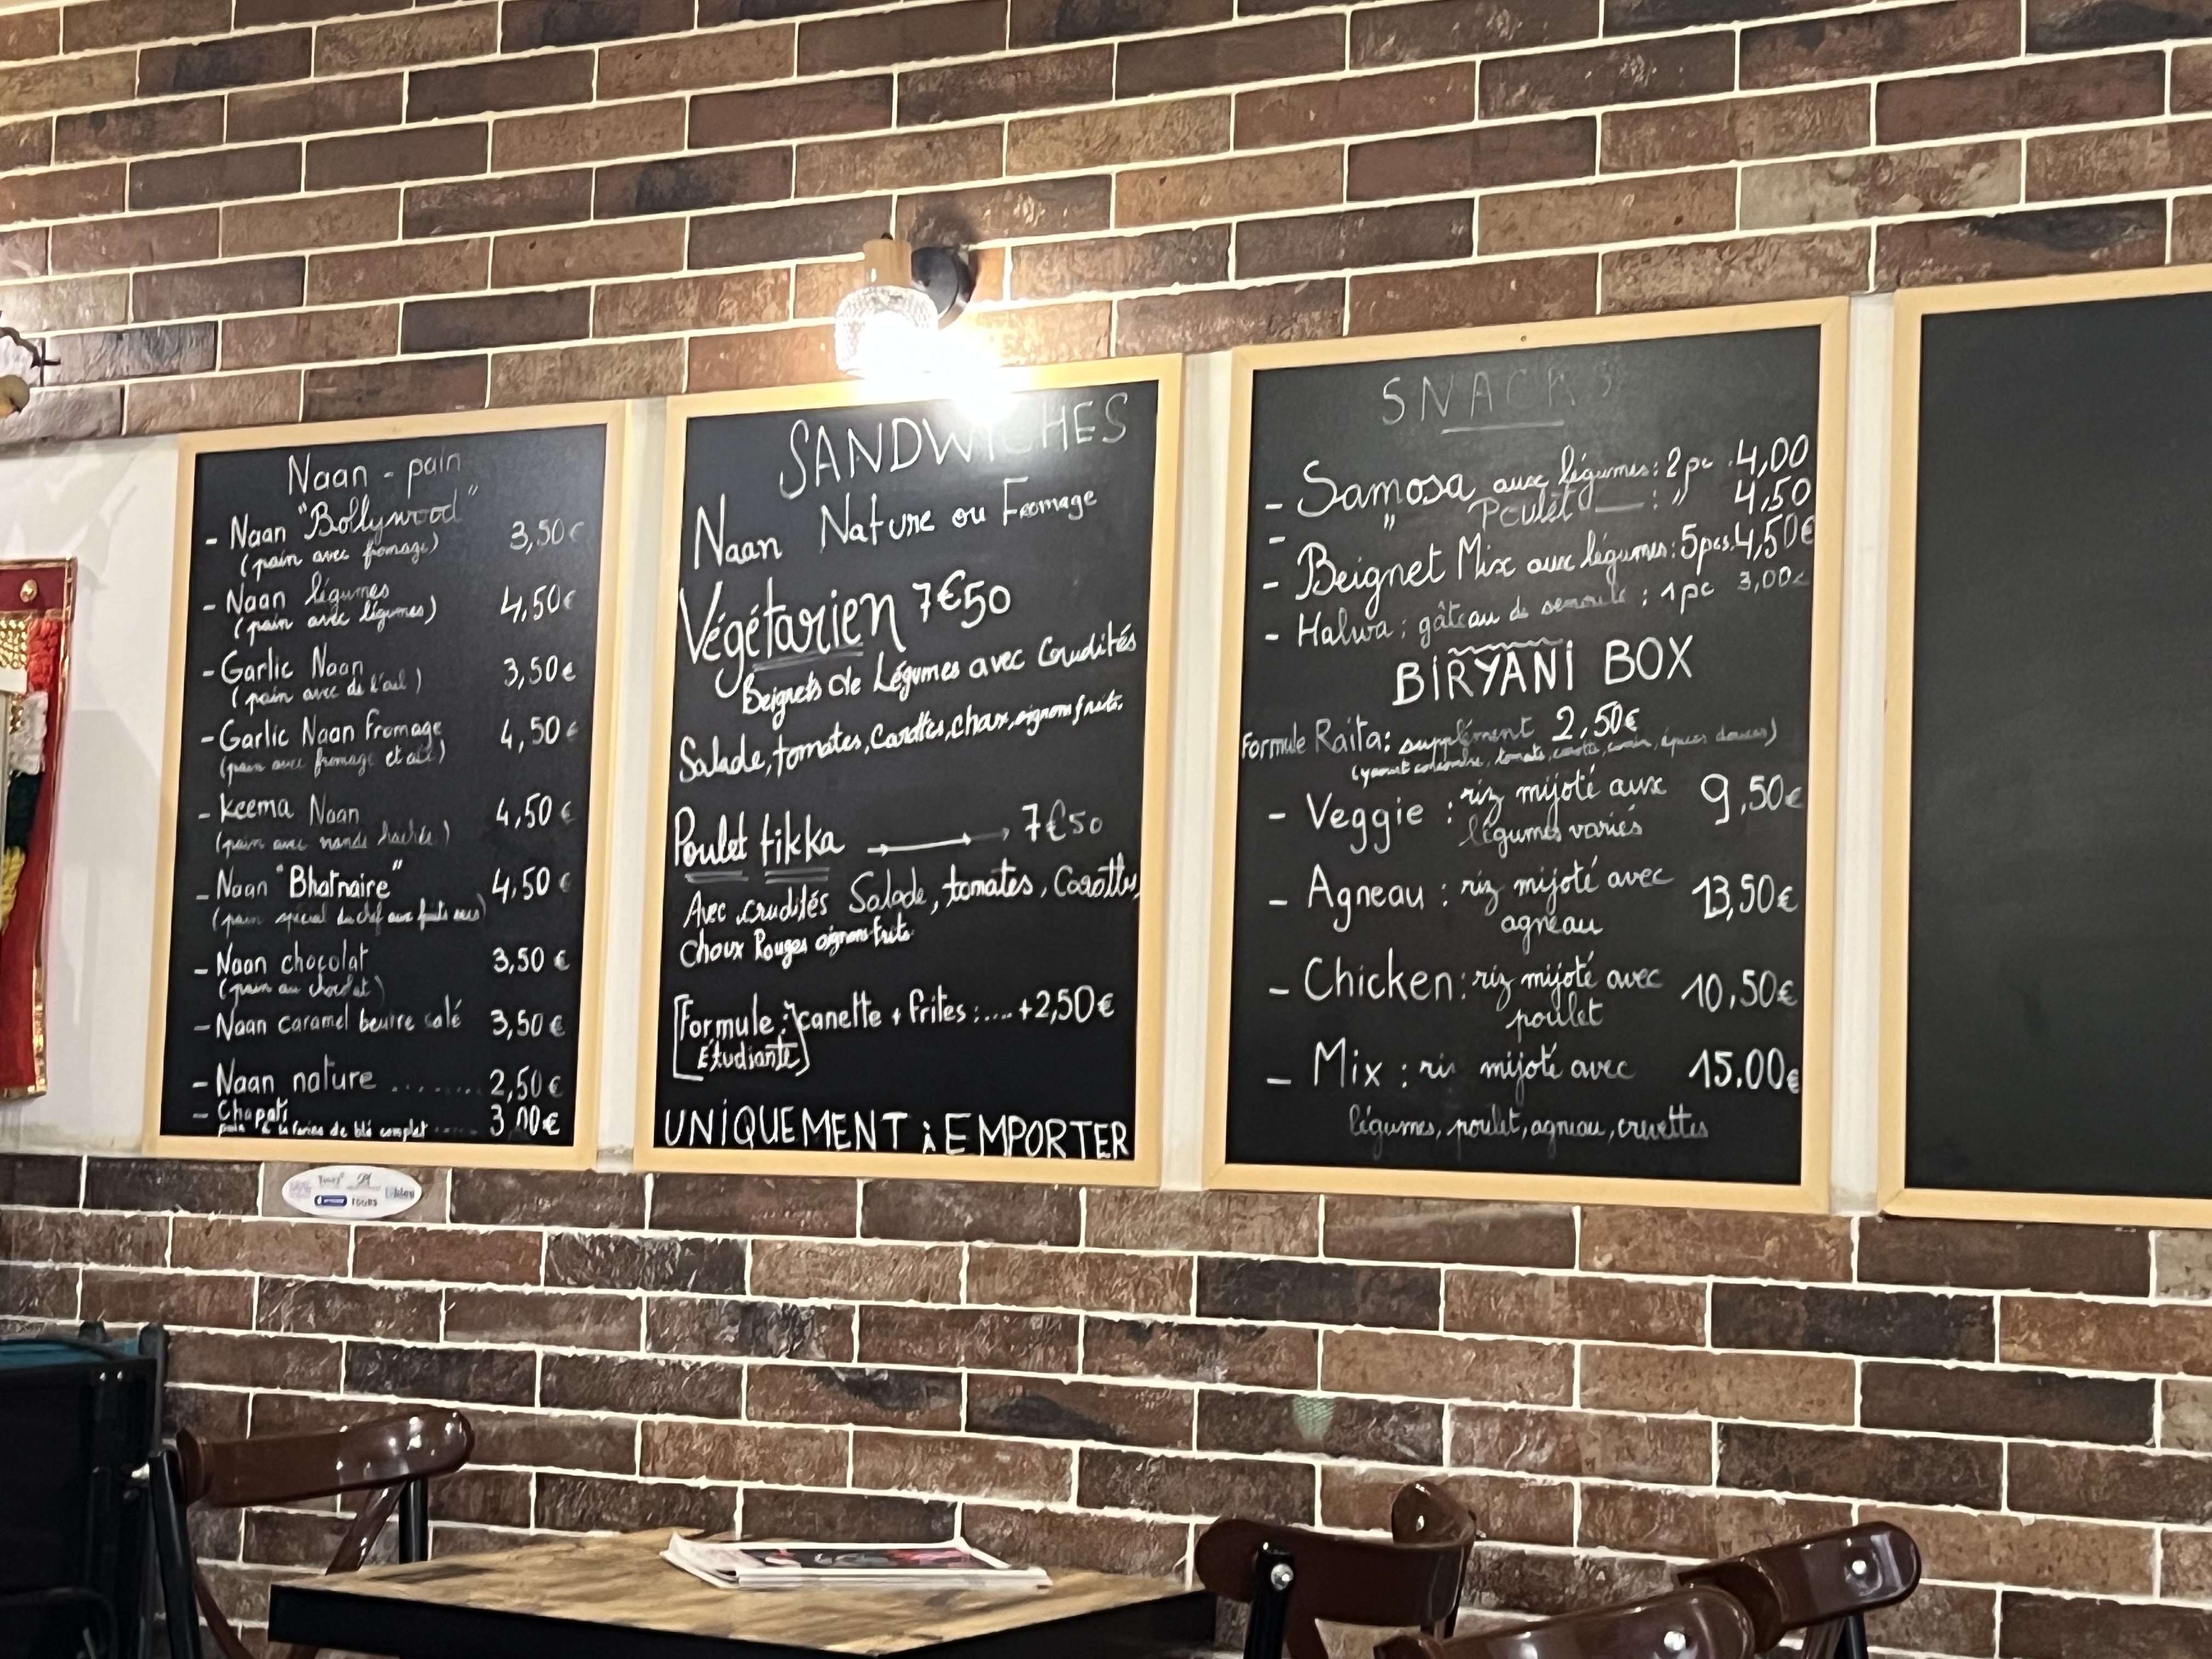 Naan - pain
- Naan "Bollywood" 3,50€
(pain avec fromage)
- Naan légumes 4,50€
(pain avec légumes)
- Garlic Naan 3,50€
(pain avec de l'ail)
- Garlic Naan Fromage 4,50€
(pain avec fromage et ail)
- Keema Naan 4,50€
(pain avec viande hachée)
- Naan "Bhatnaire" 4,50€
(pain spécial du chef aux fruits secs)
- Naan chocolat 3,50€
(pain au chocolat)
- Naan caramel beurre salé 3,50€
- Naan nature ........ 2,50€
- Chapati
de blé complet ..... 3,00€
SANDWICHES
Naan Nature ou Fromage
Végétarien 7€50
Beignets de Légumes avec Crudités
Salade, tomates, Carottes, choux, oignons frits.
Poulet tikka 7€50
Avec crudités Salade, tomates, Carottes,
Choux Rouges oignons frits
[Formule : canette + frites : .... +2,50€
Étudiante
UNIQUEMENT à EMPORTER
SNACKS
- Samosa aux légumes : 2pc . 4,00
- " Poulet — : " 4,50
- Beignet Mix aux légumes : 5pcs. 4,50€
- Halwa : gâteau de semoule : 1pc 3,00€
BIRYANI BOX
Formule Raita : supplément 2,50€
(yaourt coriandre, tomate, carotte, cumin, épices douces)
- Veggie : riz mijoté aux 9,50€
légumes variés
- Agneau : riz mijoté avec 13,50€
agneau
- Chicken : riz mijoté avec 10,50€
poulet
- Mix : riz mijoté avec 15.00€
légumes, poulet, agneau, crevettes
TOURS